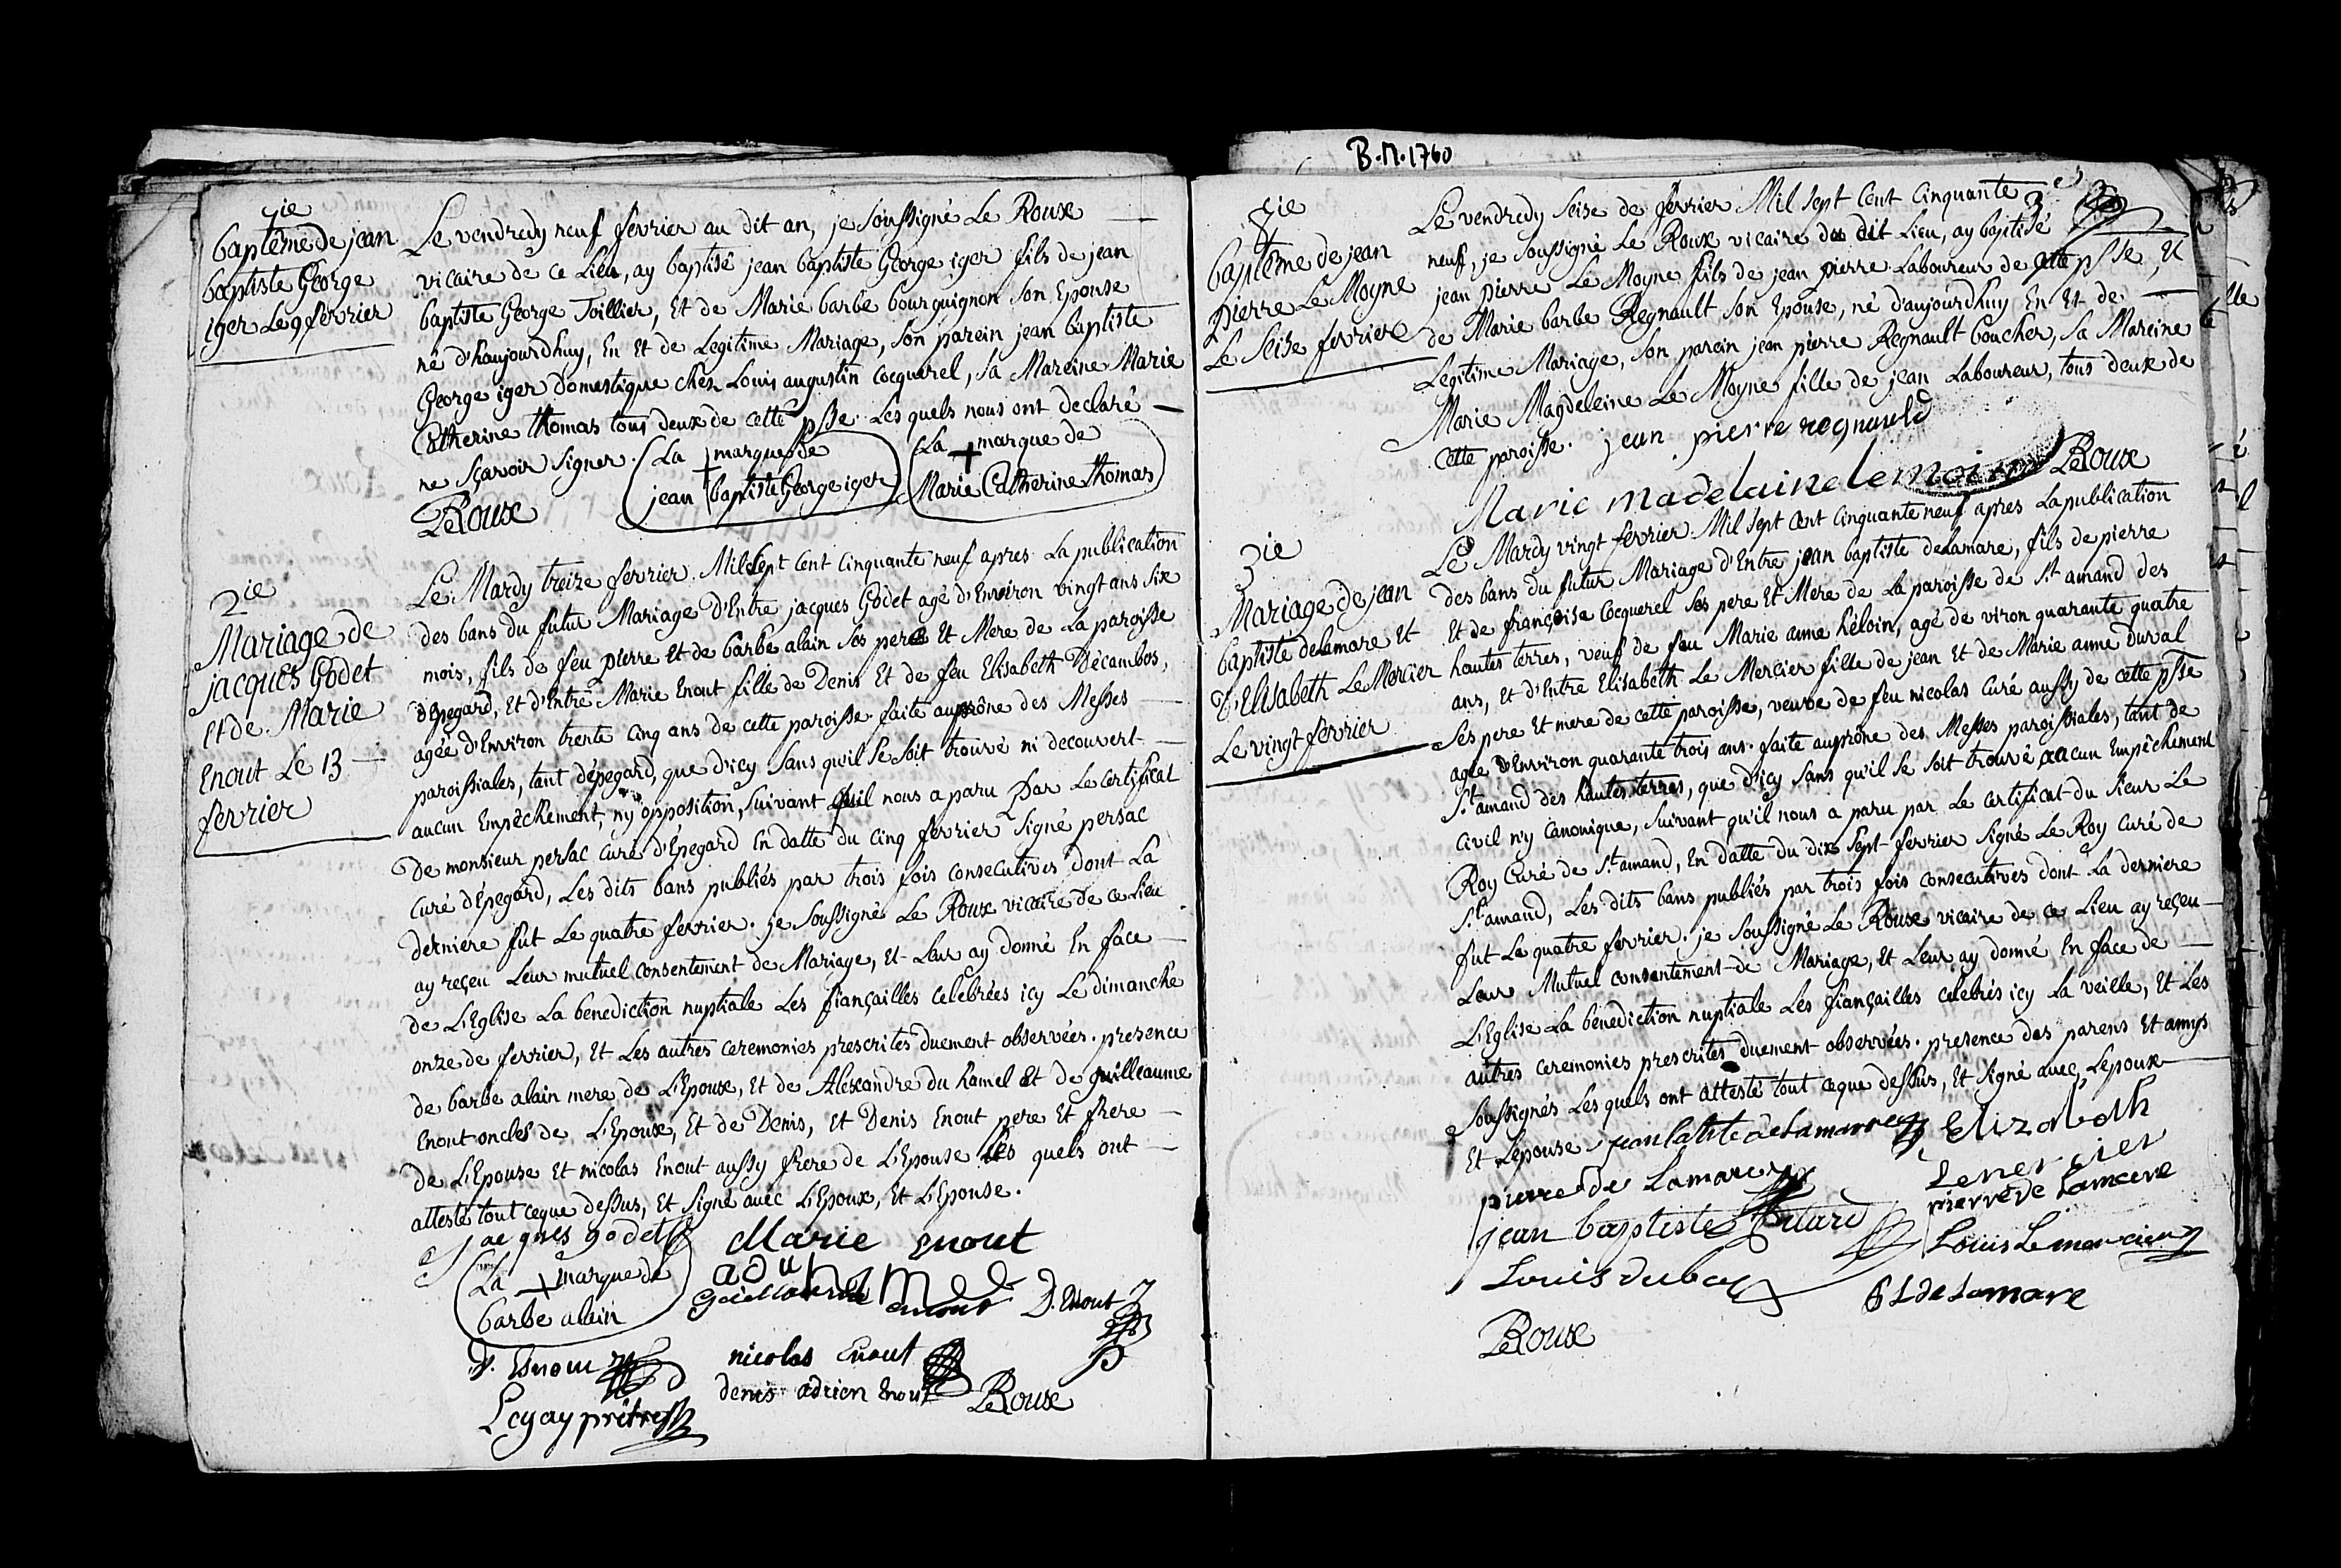 7ie
baptême de jean
baptiste George
iger Le 9 fevrier
Le vendredy neuf fevrier au dit an, je soussigné Le Roux
vicaire de ce Lieu, ay baptisé jean baptiste George iger fils de jean
baptiste George Toillier, Et de Marie barbe bourguignon son Epouse
né d'haujourdhuy, En Et de Legitime Mariage, son parein jean baptiste
George iger Domestique chez Louis augustin Cocquerel, sa Mareine Marie
Catherine thomas tous deux de cette psse. Les quels nous ont declaré
ne sçavoir signer. La marque de
jean baptiste George iger
La marque de
Marie Catherine thomas
LeRoux
2ie
Mariage de
jacques Godet
et de Marie
Enout Le 13
fevrier
Le Mardy treize fevrier Mil sept cent cinquante neuf apres La publication
des bans du futur Mariage D'Entre jacques Godet agé d'Environ vingt ans six
mois, fils de feu pierre Et de barbe alain ses pere Et Mere de La paroisse
d'Epegard, Et d'Entre Marie Enout fille de Denis Et de feu Elisabeth Décambos,
agée d'Environ trente cinq ans de cette paroisse faite au prône des Messes
paroissiales, tant d'épegard, que d'icy sans qu'il se soit trouvé ni decouvert
aucun Empêchement, ny opposition, suivant qu'il nous a paru Par Le certificat
De monsieur persac curé d'Epegard En datte du cinq fevrier signé persac
curé d'Epegard, Les dits bans publiés par trois fois consecutives dont La
derniere fut Le quatre fevrier. je soussigné Le Roux vicaire de ce Lieu
ay reçeu Leur mutuel consentement de Mariage, et Leur ay donné En face
de L'Eglise La benediction nuptiale Les fiançailles celebrées icy Le dimanche
onze de fevrier, Et Les autres ceremonies prescrites duement observées. presence
de barbe alain mere de L'Epoux, Et de Alexandre du hamel Et de guilleaume
Enout oncles de L'Epoux, Et de Denis, Et Denis Enout pere Et frere
de L'Epouse Et nicolas Enout aussy frere de L'Epouse Les quels ont
attesté tout ceque dessus, Et signé avec L'Epoux, Et L'Epouse.
jacques godet Marie enout
La marque de
barbe alain
D. Enout
nicolas Enout
denis adrien Enout LeRoux
Legay prêtre
B.M. 1760
3
8ie
baptême de jean
pierre Le Moyne
Le Seise fevrier
Le vendredy seise de fevrier Mil sept cent cinquante
neuf, je soussigné Le Roux vicaire du dit Lieu, ay baptisé
jean pierre Le Moyne fils de jean pierre Laboureur de cette psse, Et
de Marie barbe Regnault son Epouse, né d'aujourdhuy En Et de
Legitime Mariage, son parein jean pierre Regnault boucher, sa Mareine
Marie Magdeleine Le Moyne fille de jean Laboureur, tous deux de
cette paroisse. jean pierre regnauld
Marie madelaine lemoine LeRoux
3ie
Mariage de jean
baptiste delamare Et
d'Elisabeth Le Mercier
Le vingt fevrier
Le Mardy vingt fevrier Mil sept cent cinquante neuf apres La publication
des bans du futur Mariage d'Entre jean baptiste delamare, fils de pierre
Et de françoise Cocquerel ses pere Et Mere de La paroisse de St amand des
hautes terres, veuf de feu Marie anne héloin, agé de viron quarante quatre
ans, Et d'Entre Elisabeth Le Mercier fille de jean Et de Marie anne Duval
ses pere Et mere de cette paroisse, veuve de feu nicolas Curé aussy de cette psse
agée d'Environ quarante trois ans. faite au prône des Messes paroissiales, tant de
St amand des hautes terres, que d'icy sans qu'il se soit trouvé aucun Empêchement
civil n'y Canonique, suivant qu'il nous a paru par Le certificat du sieur Le
Roy Curé de St amand, En datte du dix sept fevrier signé Le Roy Curé de
St amand, Les dits bans publiés par trois fois consecutives dont La derniere
fut Le quatre fevrier. je soussigné Le Roux vicaire de ce Lieu ay reçeu
Leur Mutuel consentement de Mariage, Et Leur ay donné En face de
L'Eglise La benediction nuptiale Les fiançailles celebrés icy La veille, Et Les
autres ceremonies prescrites duement observées. presence des parens Et amys
soussignés Les quels ont attesté tout ceque dessus, Et signé avec L'epoux
Et L'epouse jean batiste delamarre Elizabeth
Lemercier
pierre de Lamare pierre de Lamare
jean baptiste Louis Lemercier
Louis dubos
delamare
LeRoux